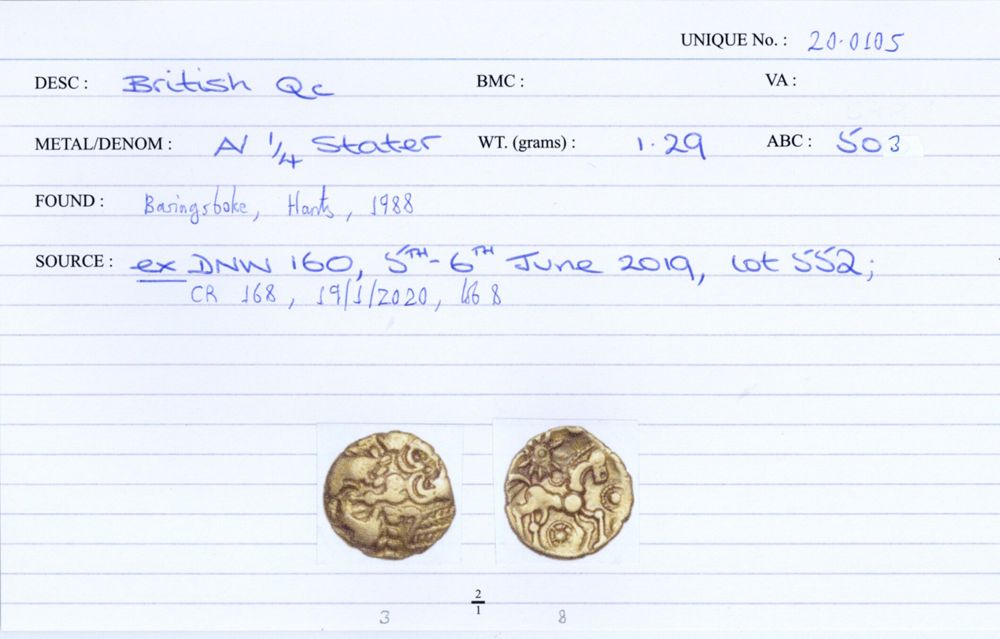 UNIQUE No. : 20·0105
DESC : British Qc BMC : VA :
METAL/DENOM : AV 1/4 Stater WT. (grams) : 1.29 ABC : 503
FOUND : Basingstoke, Hants, 1988
SOURCE : ex DNW 160, 5TH-6TH June 2019, lot 552;
CR 168, 19/1/2020, lot 8
2/1
3 8